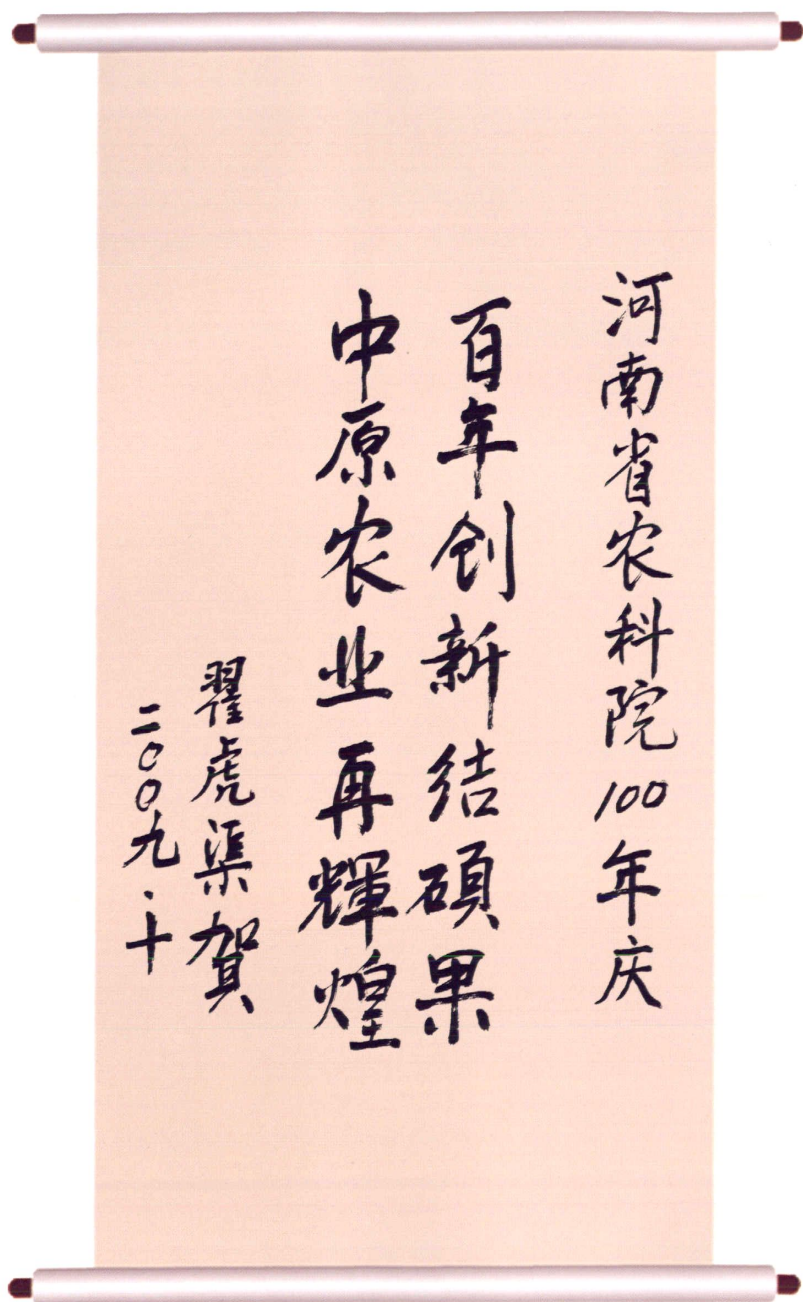 河南省农科院100年庆
百年创新结硕果
中原农业再輝煌
翟虎渠贺
二〇〇九.十